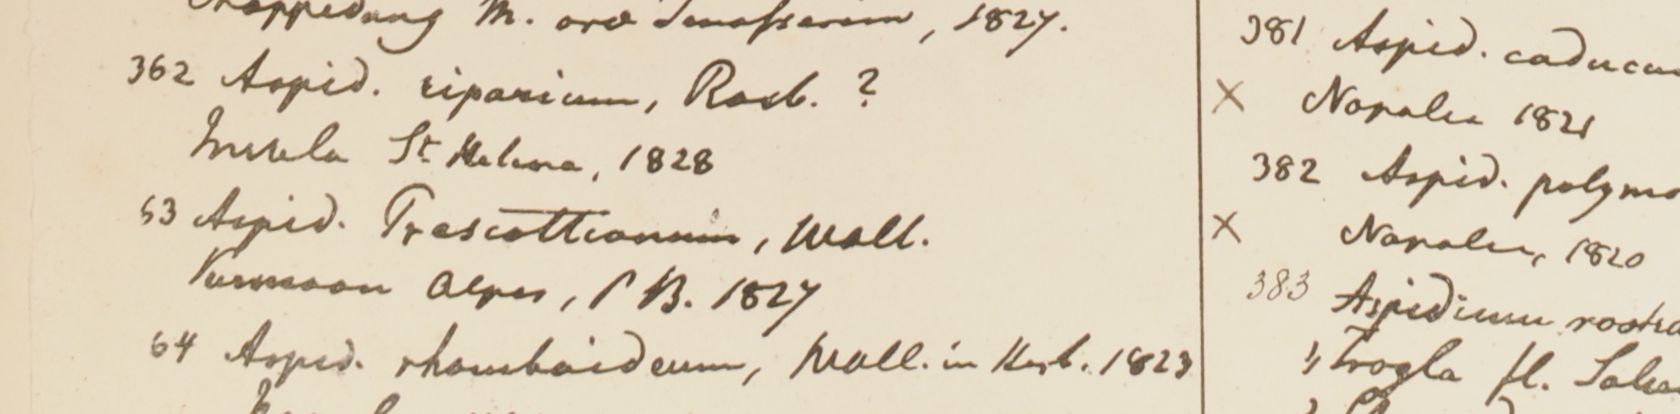 M. ora Tenasserim, 1827.
362 Aspid. riparium, Roxb. ?
Insula St Helena, 1828
63 Aspid. Prescottianum, Wall.
Kumaon Alpes, R B. 1827
64 Aspid. rhomboideum, Wall. in Herb. 1823
381 Aspid. caducum
X Napalia 1821
382 Aspid. polymo
X Napalia, 1820
383 Aspidium rostra
Trogla fl.